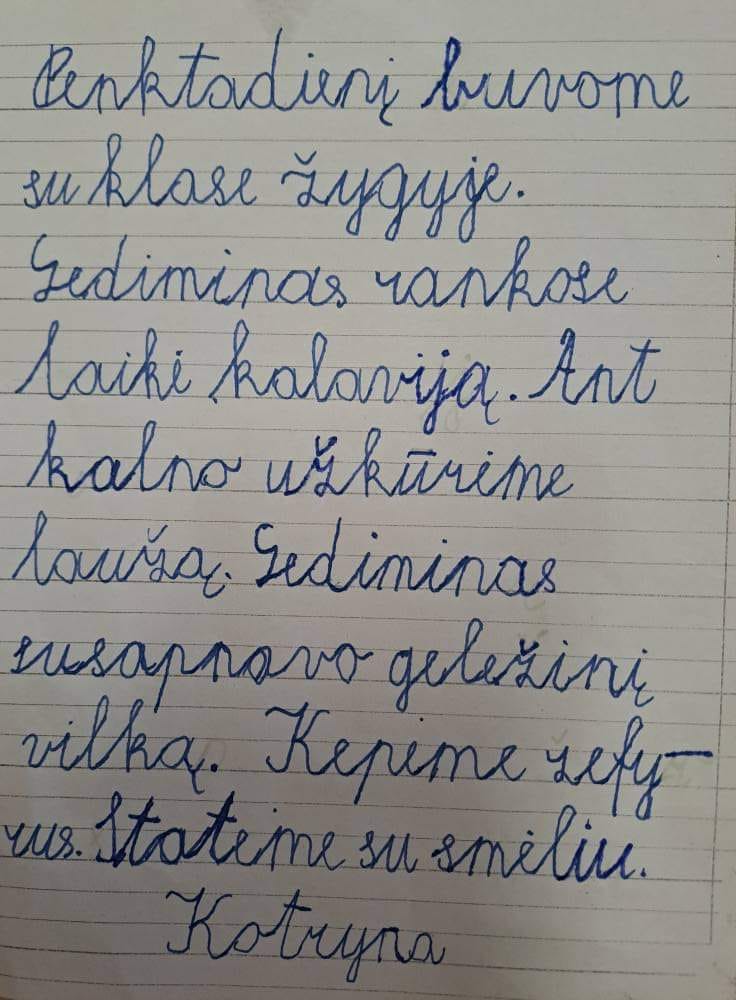 Penktadienį buvome
su klase žygyje.
Gediminas rankose
laikė kalaviją. Ant
kalno užkūrėme
laužą. Gediminas
susapnavo geležinį
vilką. Kepėme zefy-
rus. Statėme su smėliu.
Kotryna